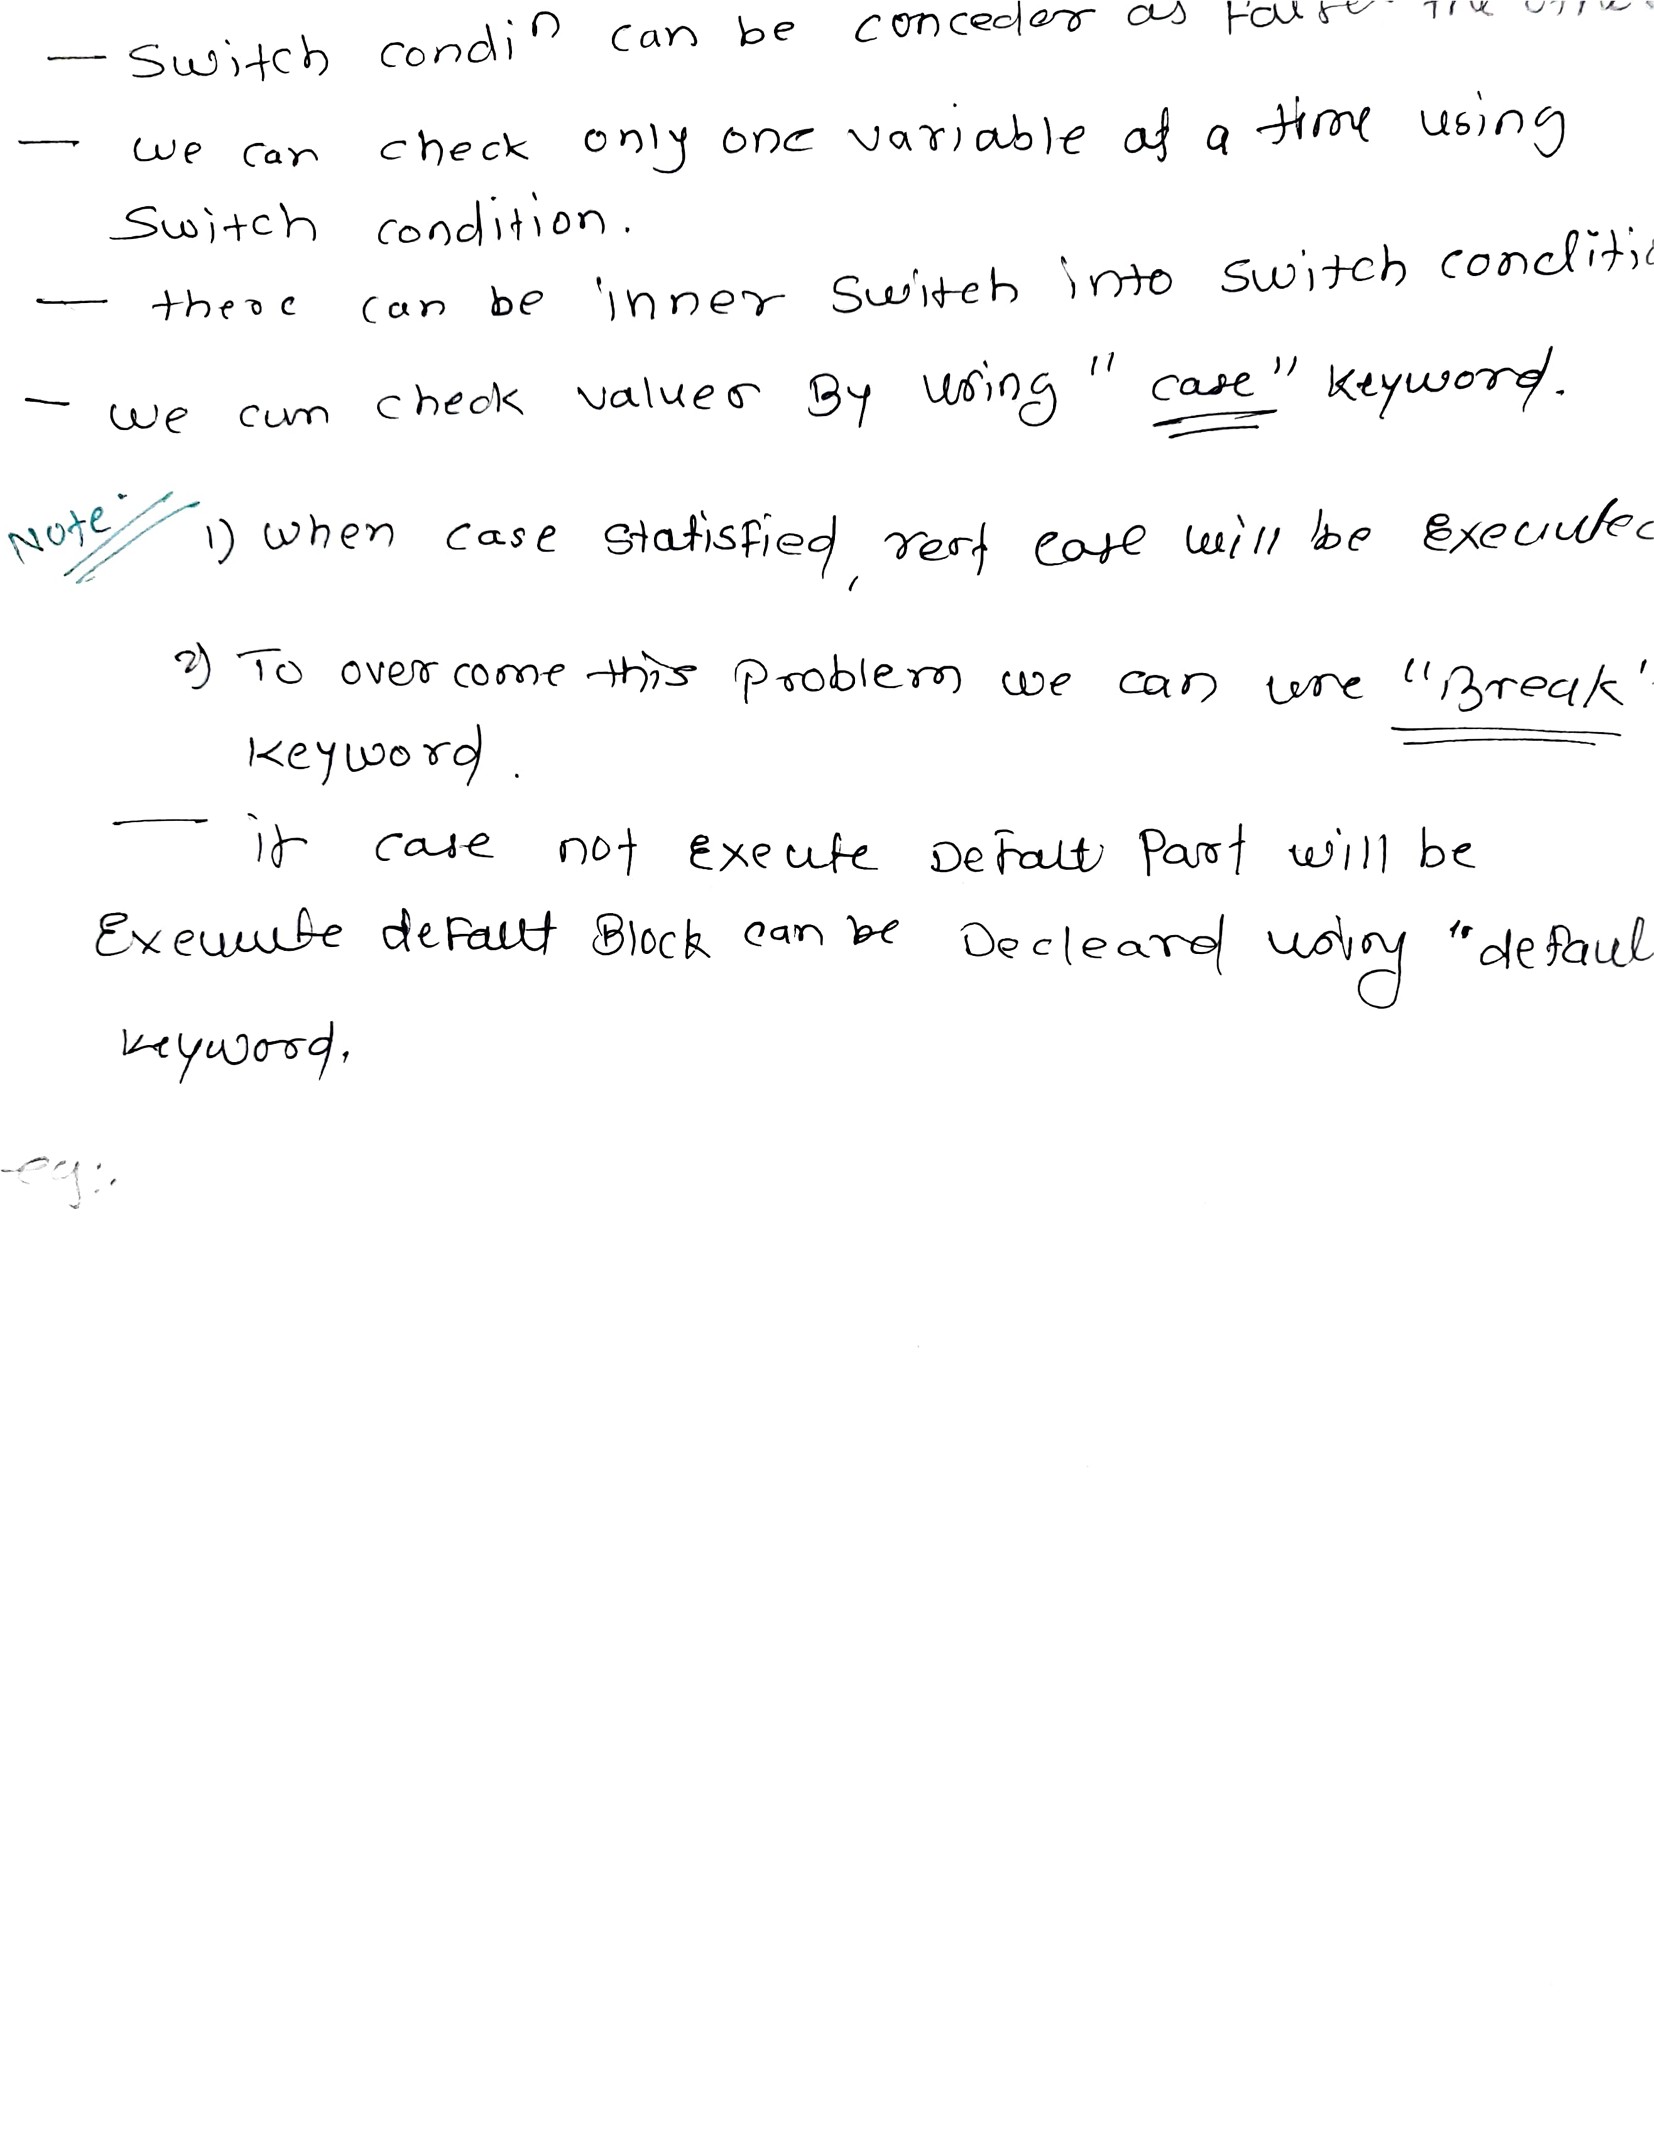 — Switch condiⁿ can be conceder as False. The
— we can check only one variable at a time using
Switch condition.
— there can be inner switch into switch conditio
— we can check values By using "case" keyword.
Note: 1) when case statisfied, rest case will be Executed
2) To overcome this problem we can use "Break"
keyword.
— if case not Execute Defalt Part will be
Execute default Block can be Decleard using "defaul
keyword.
eg:.